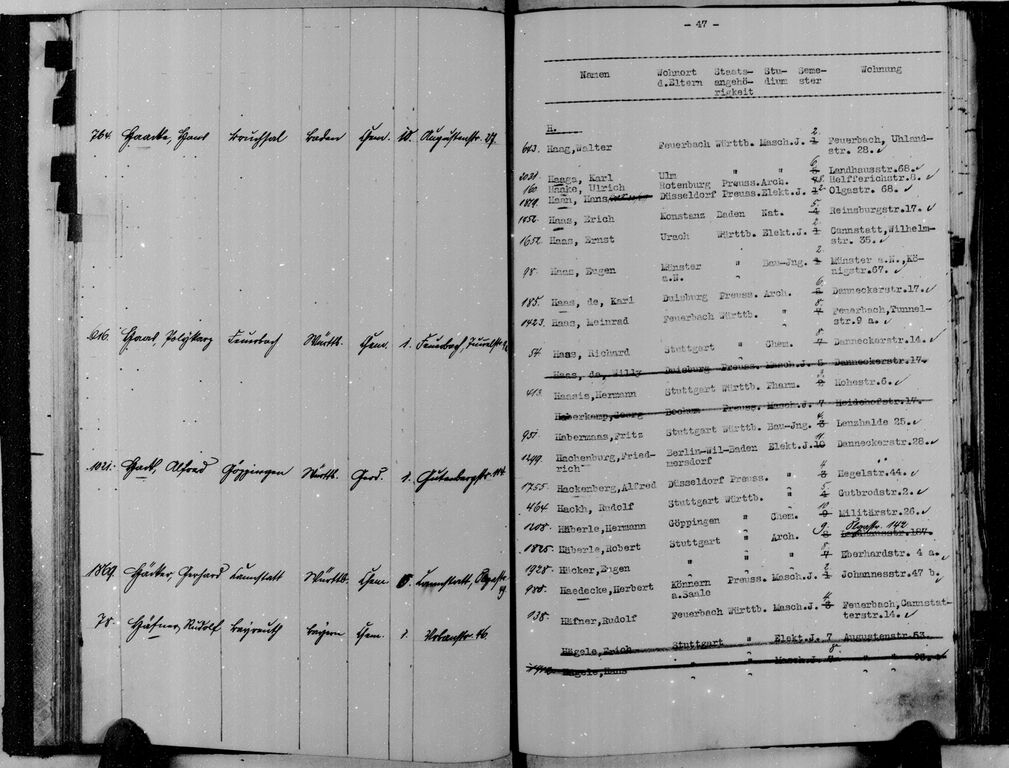 764. Haacke, Hans Bruchsal Baden Chem. 10. Augustenstr. 27.
616. Haas, Polykarp Feuerbach Württb. Chem. 1. Feuerbach,
1021. Hack, Alfred Göppingen Württb. 1. Gutenbergstr.
1869. Häcker, Gerhard Cannstatt Württb. Chem. Cannstatt,
78. Häfner, Rudolf Bayreuth Bayern Chem. 1. Urbanstr. 46
- 47 -
Namen Wohnort Staats- Stu- Seme- Wohnung
d.Eltern angehö- dium ster
rigkeit
H.
2
643. Haag, Walter Feuerbach Württb. Masch.J. 1 Feuerbach, Uhland-
str. 28.
2031. Haaga, Karl Ulm " " 6 Landhausstr.68.
160. Haake, Ulrich Rotenburg Preuss. Arch. Helfferichstr.8.
1879. Haan, Hans Düsseldorf Preuss. Elekt.J. 1 2 Olgastr. 68.
5
1452. Haas, Erich Konstanz Baden Nat. 4 Reinsburgstr.17.
2
1652. Haas, Ernst Urach Württb. Elekt.J. 1 Cannstatt, Wilhelm-
str. 35.
2
98. Haas, Eugen Münster " Bau-Jng. 1 Münster a.N., Kö-
a.N. nigstr.67.
6
185. Haas, de, Karl Duisburg Preuss. Arch. Danneckerstr.17.
8
1423. Haas, Meinrad Feuerbach Württb. " 7 Feuerbach, Tunnel-
str.9 a.
8
54. Haas, Richard Stuttgart " Chem. 7 Danneckerstr.14.
Haas, de, Willy Duisburg Preuss. Masch.J. 5 Danneckerstr.17.
413. Haasis, Hermann Stuttgart Württb. Pharm. Hohestr.6.
Haberkamp, Joerg Bochum Preuss. Masch.J. 7 Heidehofstr.17.
4
951. Habermaas, Fritz Stuttgart Württb. Bau-Jng. 3 Lenzhalde 25.
11
1299. Hachenburg, Fried- Berlin-Wil- Baden Elekt.J. 10 Danneckerstr.28.
rich mersdorf
4
1755. Hackenberg, Alfred Düsseldorf Preuss. " 3 Hegelstr.44.
5
464. Hackh, Rudolf Stuttgart Württb. " 4 Gutbrodstr.2.
10
1208. Häberle, Hermann Göppingen " Chem. 9 Militärstr.26.
9. Olgastr. 142
1825. Häberle, Robert Stuttgart " Arch. 8
8
1928. Häcker, Eugen " " " 7 Eberhardstr. 4 a.
2
980. Haedecke, Herbert Könnern Preuss. Masch.J. 1 Johannesstr.47 b.
a.Saale
4
938. Häfner, Rudolf Feuerbach Württb. Masch.J. 3 Feuerbach, Cannstat-
terstr.14.
Hägele, Erich Stuttgart " Elekt.J. 7 Augustenstr.63.
8
Hägele, Hans " " Masch.J. 7 " "